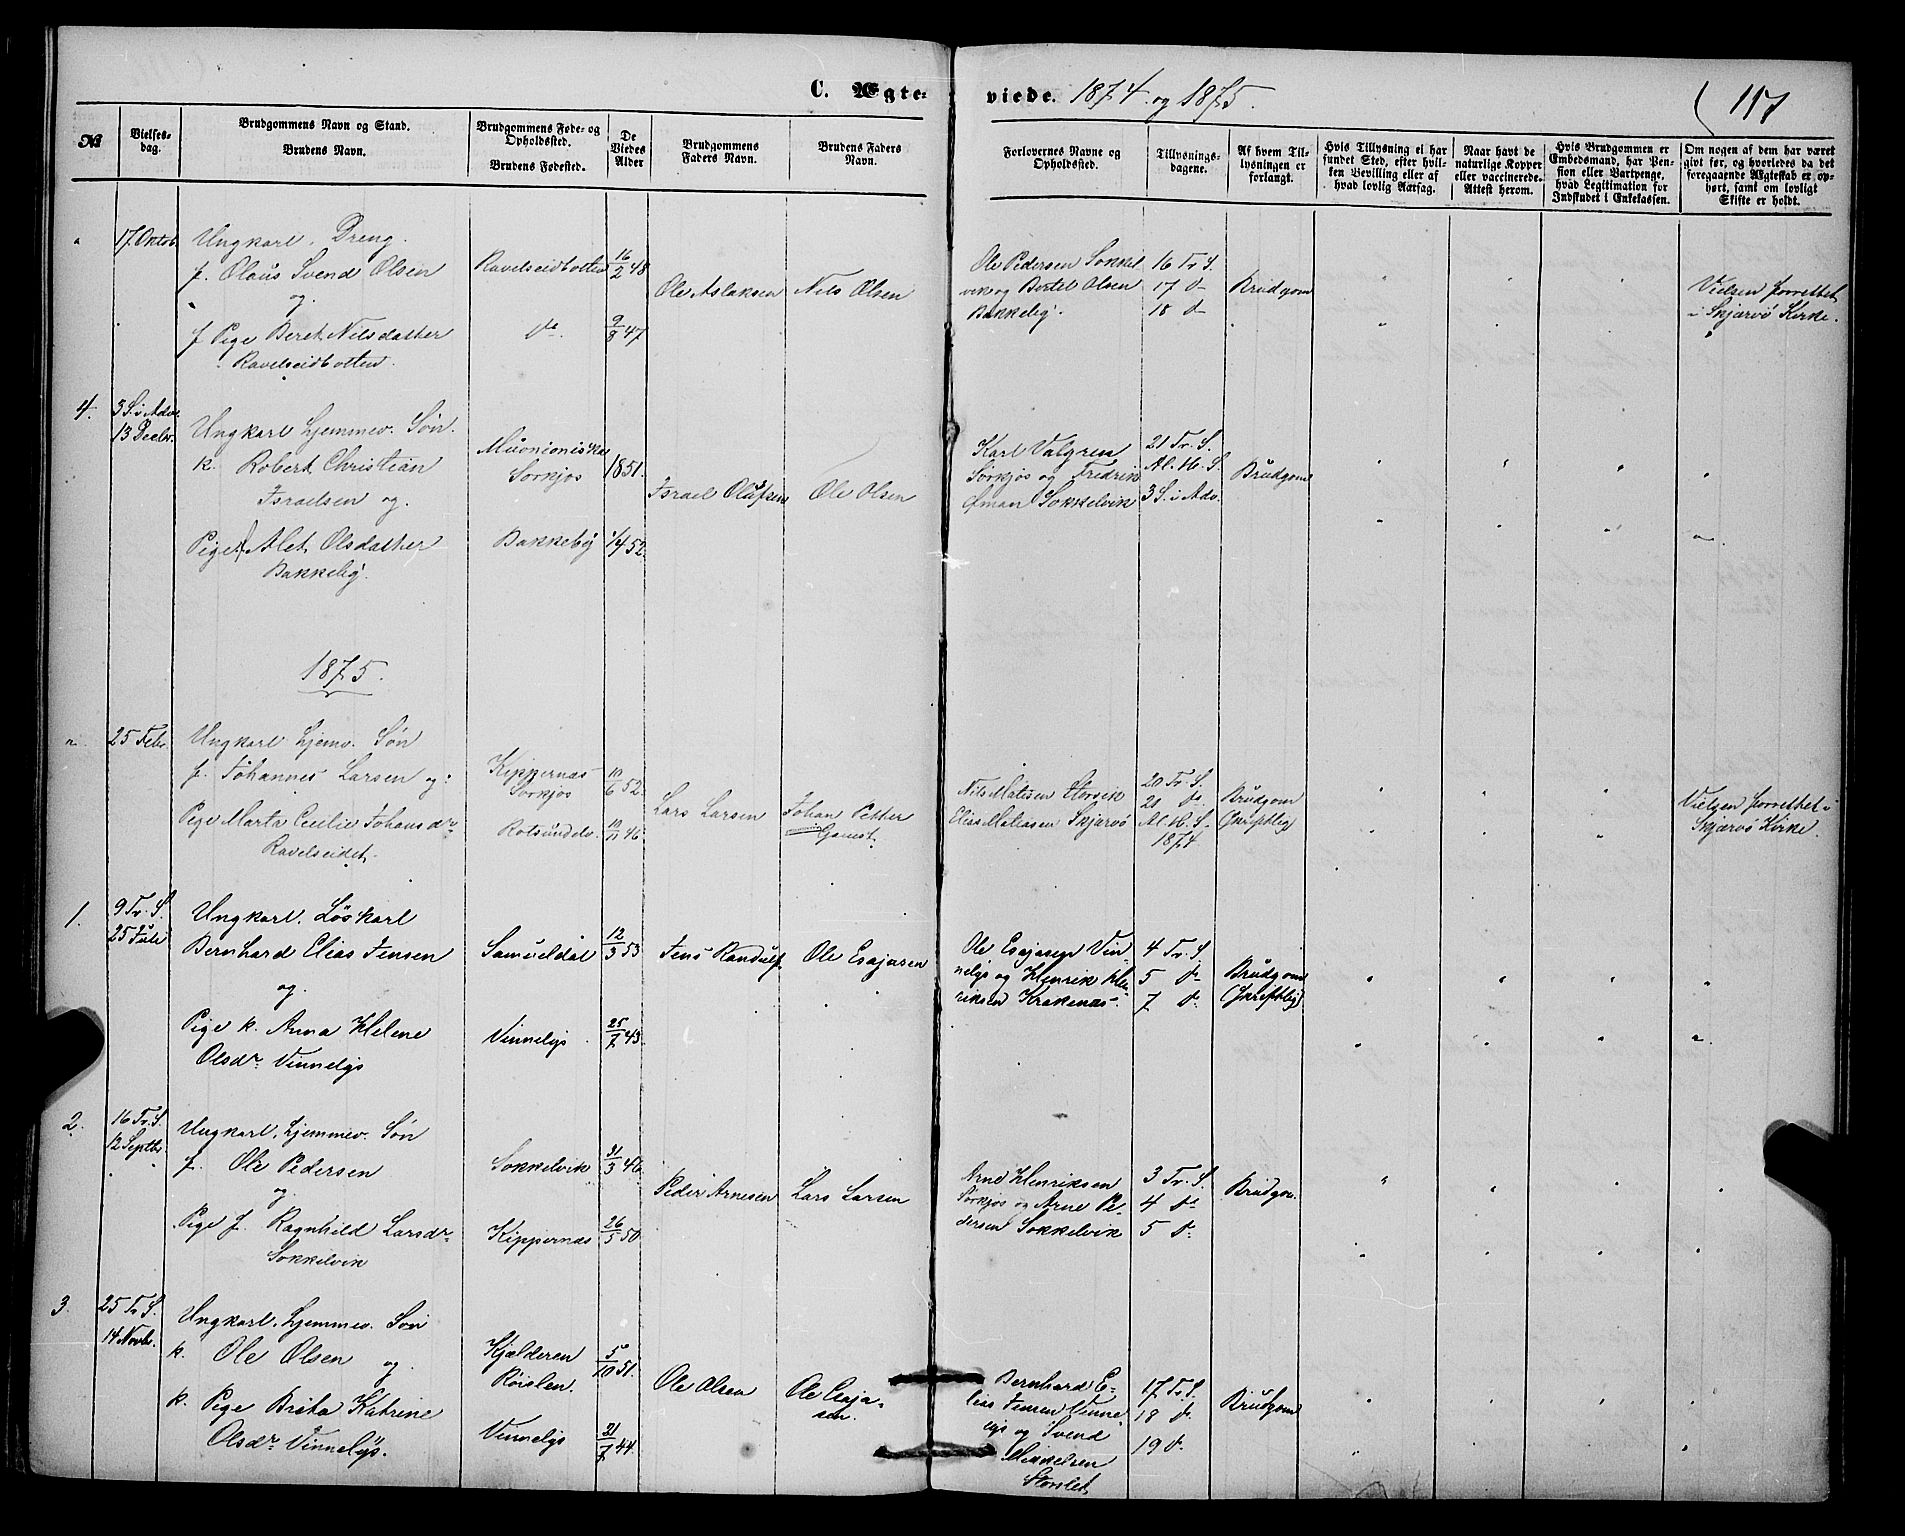 C. Ægte- viede. 1874 og 1875.
117
No
Vielses-
dag.
Brudgommens Navn og Stand.
Brudens Navn.
Brudgommens Føde- og
Opholdssted.
Brudens Fødested.
De
Viedes
Alder
Brudgommens
Faders Navn.
Brudens Faders
Navn.
Forlovernes Navne og
Opholdssted.
Tillysnings-
dagene.
Af hvem Til-
lysningen er
forlangt.
Hvis Tillysning ei har
fundet Sted, efter hvil-
ken Bevilling eller af
hvad lovlig Aarsag.
Naar havt de
naturlige Kopper
eller vaccinerede.
Attest herom.
Hvis Brudgommen er
Embedsmand, har Pen-
sion eller Vartpenge,
hvad Legitimation for
Indskudet i Enkekassen.
Om nogen af dem har været
gift før, og hvorledes da det
foregaaende Ægteskab er op-
hørt, samt om lovligt
Skifte er holdt.
17 Oktob.
Ungkarl. Dreng.
f. Olaus Svend Olsen
og
f Pige Beret Nilsdatter
Ravelseidbotten.
Ravelseidbotten
do
16/2 48
9/3 47
Ole Aslaksen
Nils Olsen
Ole Pedersen Sokkel
vik og Bertel Olsen
Bakkeby.
16 Tr. S.
17 d
18 d
Brudgom
Vielsen forrettet
i Skjærvö Kirke.
4.
3 S. i Adv.
13 Decbr.
Ungkarl hjemmev. Søn.
k. Robert Christian
Israelsen og.
Pige f Alet Olsdatter
Bakkeby.
Muonioniska
Sorkjos
Bakkeby
1851.
1/4 52.
Israel Olufsen
Ole Olsen
Karl Valgren
Sörkjos og Fredrik
Öman Sokkelvik
21 Tr. S.
Al. H. S.
3 S. i Adv.
Brudgom
1875.
25 Febr.
Ungkarl hjemv. Søn
f. Johannes Larsen og
Pige Marta Cecilie Johansdr
Ravelseidet.
Kippernæs
Sorkjos
Rotsundelv.
10/6 52.
10/11 46.
Lars Larsen
Johan Petter
Nils Matisen
Elias Matiasen Skjærvö
20 Tr. S.
21 do
Al. H. S.
1874
Brudgom
(skriftlig)
Vielsen forrettet i
Skjærvö Kirke.
1.
9 Tr. S.
25 Juli
Ungkarl. Löskarl
Bernhard Elias Jensen
og
Pige k. Anna Helene
Olsdr Vinnelys
Samueldal
Vinnelys
12/3 53
25/7 43.
Jens Randulf
Ole Esajasen
Ole Esajasen Vin-
nelys og Henrik Hen
riksen Krakenæs.
4 Tr. S.
5 do
7 do
Brudgom
(skriftlig)
2.
16 Tr. S.
12 Septbr.
Ungkarl. hjemmev. Søn
f. Ole Pedersen
og
Pige f. Ragnhild Larsdr
Sokkelvik
Sokkelvik
Kippernæs
31/3 46.
26/5 50
Peder Arnesen
Lars Larsen
Arne Henriksen
Sörkjos og Arne Pe-
dersen Sokkelvik
3 Tr. S.
4 do
5 do
Brudgom.
3.
25 Tr. S.
14 Novbr.
Ungkarl. hjemmev. Søn
k. Ole Olsen og.
k. Pige Brita Katrine
Olsdr Vinnelys.
Kjælderen
Vinnelys
5/10 51.
21/7 44.
Ole Olsen
Ole Esaja-
sen.
Bernhard E-
lias Jensen Vinne
lys og Svend
Mikkelsen
Storslet
17 Tr. S.
18 do
19 d.
Brudgom